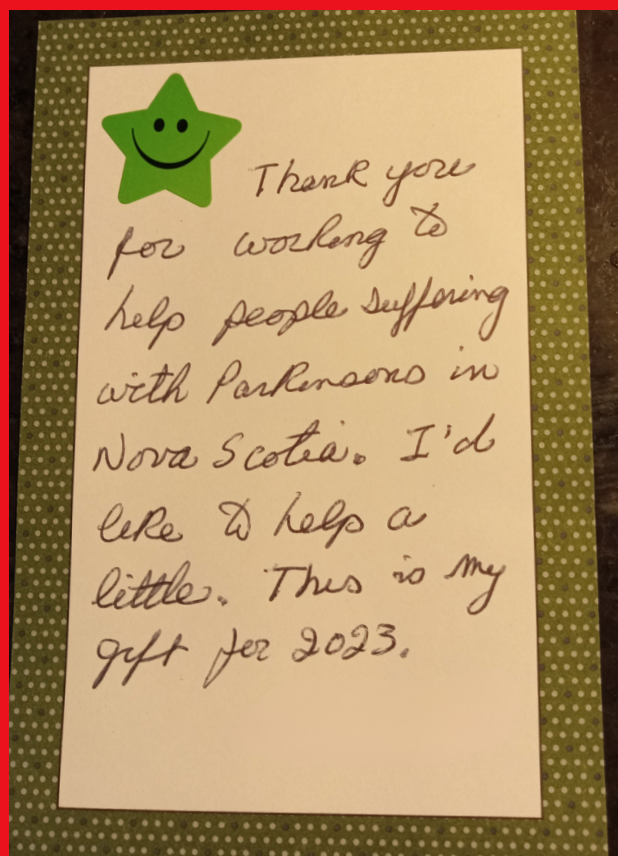 Thank you
for working to
help people suffering
with Parkinsons in
Nova Scotia. I'd
like to help a
little. This is my
gift for 2023.